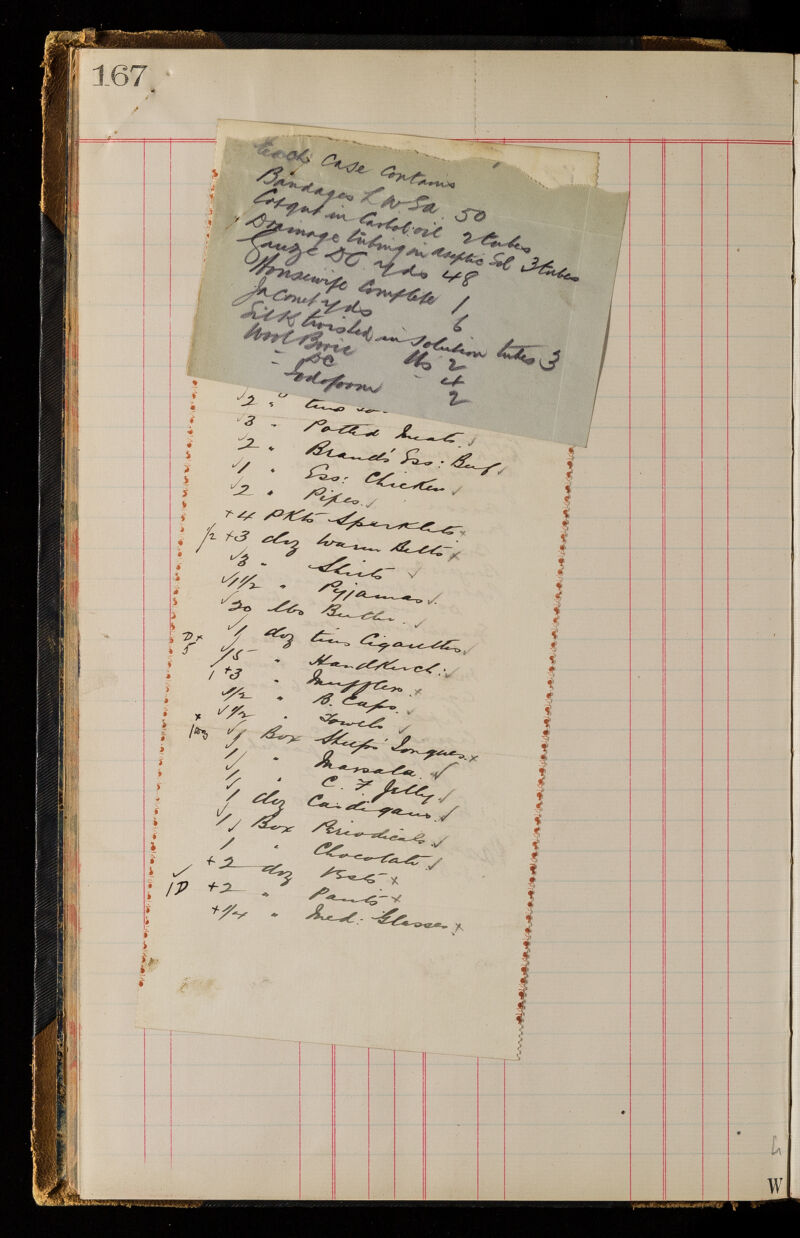 167
Each case contains
Bandages L W Sa. 50
Catgut in Carbol: oil 2 tubes
Drainage tubing in aseptic Sol 3 tubes
Gauze DC yds 48
Housewife complete 1
Jaconet yds 6
Silk twisted in Solution tubes 3
Wool Boric lbs 2
" DC - 4
- Iodoform 2
√2 " tins
√3 " Potted Meats. √
2 " Brand's Ess: Beef √
√1 " Ess: Chicken √
√2 " Pipes. √
+4 pkts Sparklets +
1/2 +3 doz Warm Belts +
√3 " Shirts √
√1 1/2 " Pyjamas √.
√20 lbs Butter. √
√1 doz tins Cigarettes √
D+ 5 √15 " Handkerch: √
1 +3 " Mufflers. +
√1/2 " B. Caps. √
√1/2 " Towels √
+ 1 doz √1 Box Sheeps' Tongues +
1√ " Marsala. √
1√ " C. F Jelly √
1√ doz Cardigans. √
1√ Box Periodicals √
1 " Chocolate √
+2 doz Vests +
√ 1D +2 " Pants +
+1/4 " Med: Glasses +
W